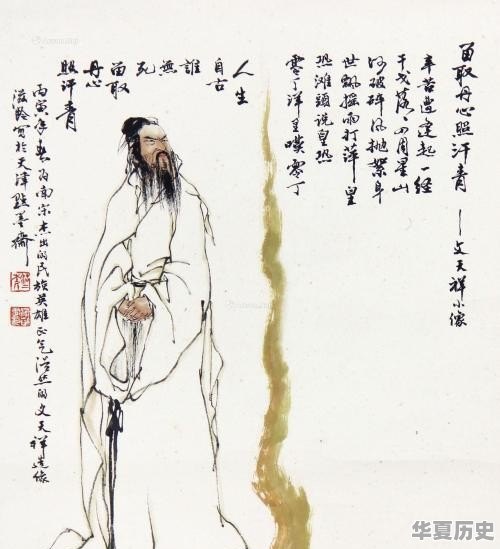 留取丹心照汗青
—文天祥小像
辛苦遭逢起一经
干戈落々四周星山
河破碎风抛絮身
世飘摇雨打萍皇
恐滩頭说皇恐
零丁洋里嘆零丁
人生
自古
誰
無
死
留取
丹心
照汗青
丙寅年春为南宋杰出的民族英雄正气浩然的文天祥造像
滋龄写於天津點墨齋
华夏历史